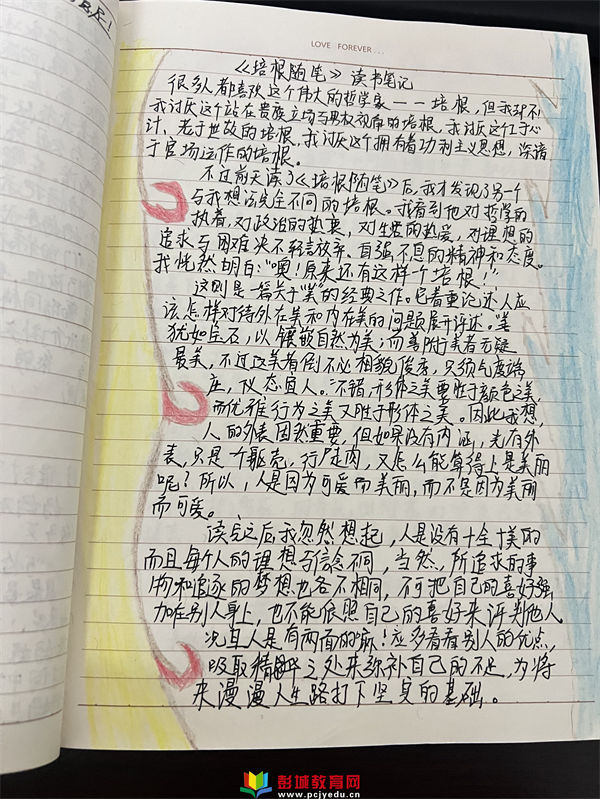 LOVE FOREVER...
《培根随笔》读书笔记
很多人都喜欢这个伟大的哲学家——培根,但我却不
我讨厌这个站在贵族立场与男权视角的培根,我讨厌这工于心
计、老于世故的培根,我讨厌这个拥有着功利主义思想,深谙
于官场运作的培根。
不过前天读了《培根随笔》后,我才发现了另一个
与我想法完全不同的培根。我看到他对哲学的
执着,对政治的热衷,对生活的热爱,对理想的
追求与困难决不轻言放弃、自强不息的精神和态度。
我恍然明白:“噢!原来还有这样个培根!”
这则是一篇关于“美”的经典之作。它着重论述人应
该怎样对待外在美和内在美的问题展开评述。“美
犹如宝石,以镶嵌自然为美;而善附于美者无疑
最美,不过这美者倒不必相貌俊秀,只须气度端
庄,仪态宜人。”不错,形体之美要胜于颜色之美,
而优雅行为之美又胜于形体之美。因此我想,
人的外表固然重要,但如果没有内涵,光有外
表,只是个躯壳,行尸走肉,又怎么能算得上是美丽
呢?所以,人是因为可爱而美丽,而不是因为美丽
而可爱。
读完之后我忽然想起,人是没有十全十美的
而且每个人的理想与信念不同,当然,所追求的事
物和追逐的梦想也各不相同,不可把自己的喜好强
加在别人身上,也不能依照自己的喜好来评判他人
况且人是有两面的嘛!应多看看别人的优点,
吸取精之处来弥补自己的不足,为将
来漫漫人生路打下坚实的基础。
彭城教育网
www.pcjyedu.cn